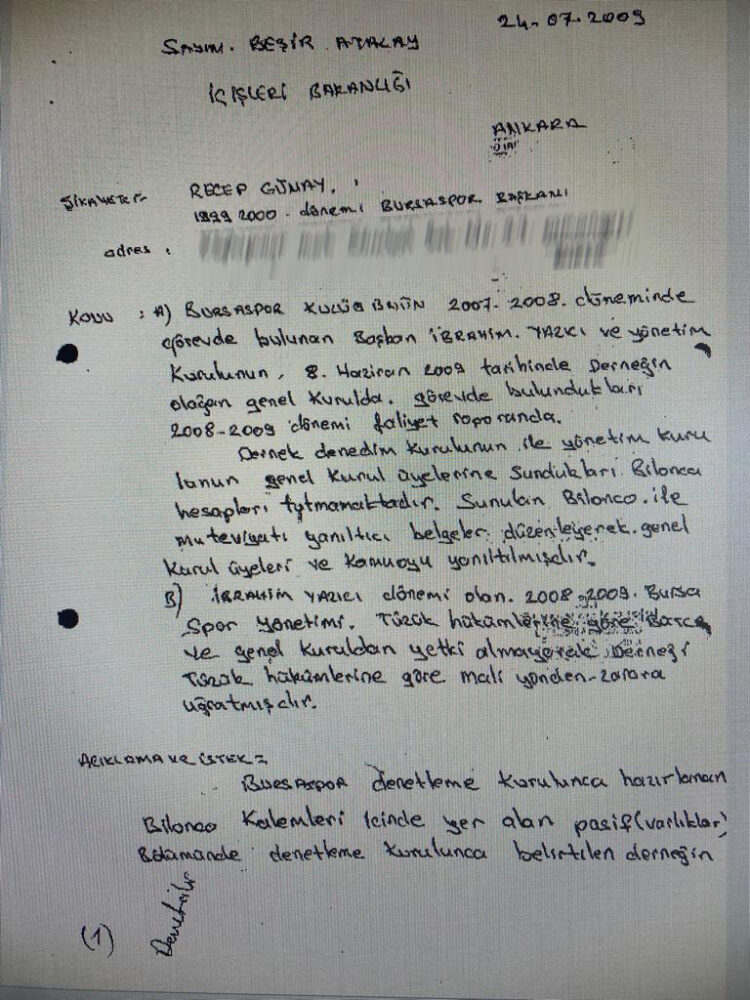 24-07-2009
SAYIN. BEŞİR ATALAY
İÇİŞLERİ BAKANLIĞI
ANKARA
ŞİKAYETÇİ- RECEP GÜNAY.
1999 2000. dönemi BURSASPOR BAŞKANI
adres :
KONU : A) BURSASPOR KULÜBÜNÜN 2007-2008. döneminde
görevde bulunan Başkan İBRAHİM. YAZICI ve yönetim
Kurulunun, 8. Haziran 2009 tarihinde Derneğin
olağan genel Kurulda. görevde bulundukları
2008-2009 dönemi faliyet roporunda.
Dernek denedim Kurulunun ile yönetim Kuru
lunun genel Kurul üyelerine Sundukları Bilonco
hesapları tutmamaktadır. Sunulan Bilonco. ile
muteviyatı yanıltıcı belgeler düzenleyerek. genel
Kurul üyeleri ve Kamuoyu yanıltılmışdır.
B) İBRAHİM YAZICI dönemi olan. 2008-2009. Bursa
Spor yönetimi. Tüzük hükümlerine göre
ve genel Kuruldan yetki almayarak Derneği
Tüzük hükümlerine göre mali yönden-zarara
uğratmışdır.
AÇIKLAMA VE İSTEK =
BURSASPOR denetleme Kurulunca hazırlanan
Bilonco Kalemleri İcinde yer alan pasif(varlıklar)
Bölümande denetleme Kurulunca belirtilen derneğin
(1)